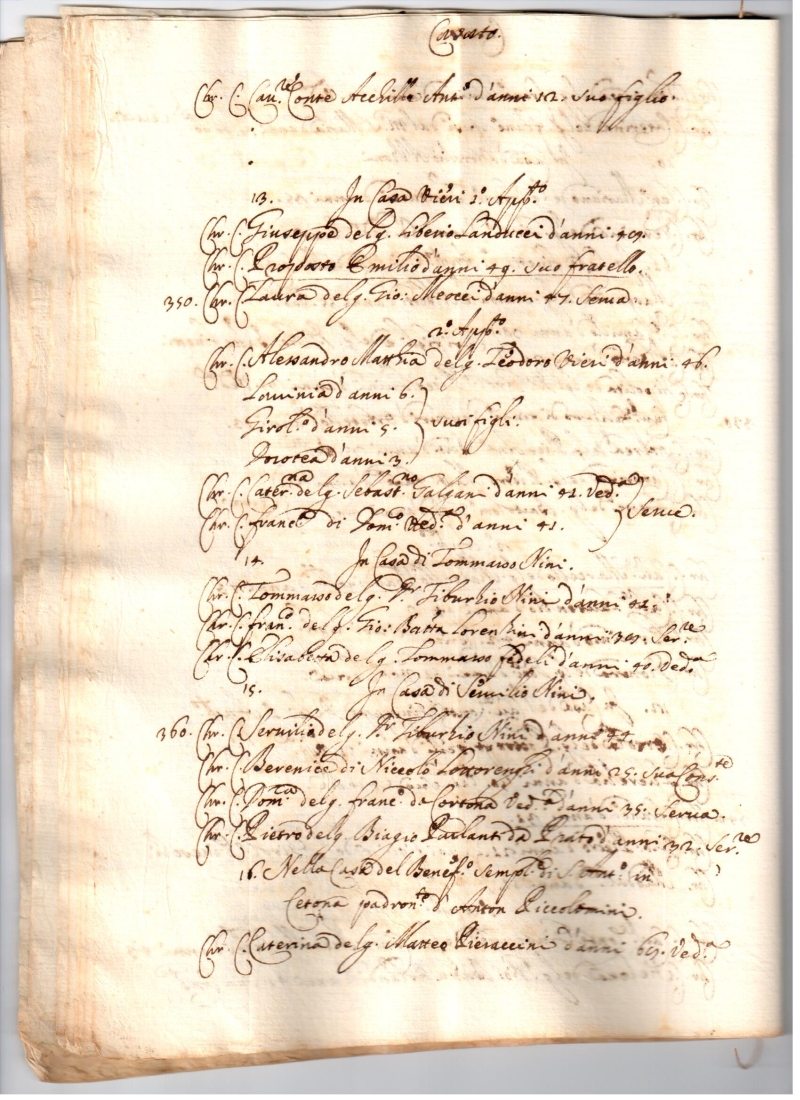 Casato.
Chr. C. Cau.re Conte Acchille Ant.o d'anni 12. suo figlio.
13. In Casa Vieri 1.o App.to
Chr. C. Giuseppe del q. Liberio Landucci d'anni 49.
Chr. C. Proposto Emilio d'anni 49. suo fratello.
350. Chr. C. Laura del q. Gio: Meocci d'anni 47. Serua
2.o App.to
Chr. C. Alessandro Matthia del q. Teodoro Vieri d'anni 46.
Lauinia d'anni 6.
Girol.o d'anni 5. } suoi figli.
Dorotea d'anni 3.
Chr. C. Cater.na del q. Sebast.no Galgani d'anni 42. Ved.a
Chr. C. Franc.a di Dom.co Ved.a d'anni 41. } Serue.
14. In Casa di Tommaso Nini.
Chr. C. Tommaso del q. Tiburzio Nini d'anni 42.
Chr. C. Fran.co del q. Gio: Batta Lorenzini d'anni 39. Ser.re
Chr. C. Elisabetta del q. Tommaso Fedeli d'anni 40. Ved.a
15. In Casa di Seruilio Nini.
360. Chr. C. Seruilio del q. Tiburzio Nini d'anni 44.
Chr. C. Berenice di Niccolò d'anni 25. sua Cons.te
Chr. C. Dom.ca del q. Franc.o da Cortona Ved.a d'anni 35. Serua.
Chr. C. Pietro del q. Biagio Parlanti da Prato d'anni 32. Ser.re
16. Nella Casa del Benef.o sempl. di S. Ant.o in
Cetona padron.to d'Anton Piccolomini.
Chr. C. Caterina del q. Matteo Pieraccini d'anni 69. Ved.a